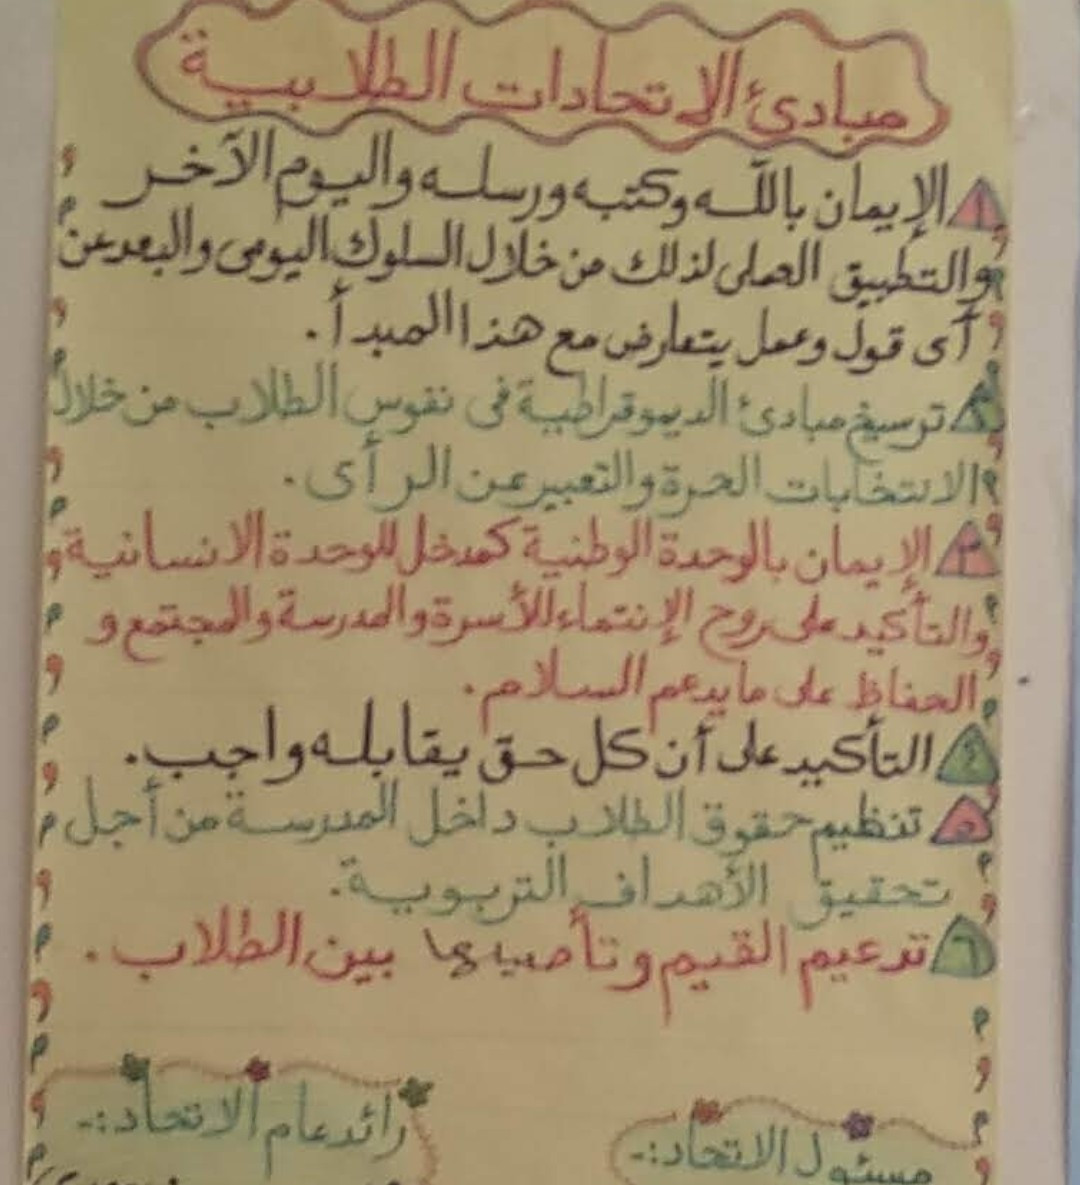 مبادئ الاتحادات الطلابية
١ الإيمان بالله وكتبه ورسله واليوم الآخر
والتطبيق العملى لذلك من خلال السلوك اليومى والبعد عن
أى قول وعمل يتعارض مع هذا المبدأ .
٢ ترسيخ مبادئ الديموقراطية فى نفوس الطلاب من خلال
الانتخابات الحرة والتعبير عن الرأى .
٣ الإيمان بالوحدة الوطنية كمدخل للوحدة الانسانية
والتأكيد على روح الإنتماء للأسرة والمدرسة والمجتمع و
الحفاظ على ما يدعم السلام .
٤ التأكيد على أن كل حق يقابله واجب .
٥ تنظيم حقوق الطلاب داخل المدرسة من أجل
تحقيق الأهداف التربوية .
٦ تدعيم القيم وتأصيلها بين الطلاب .
مسئول الاتحاد :-
رائد عام الاتحاد :-